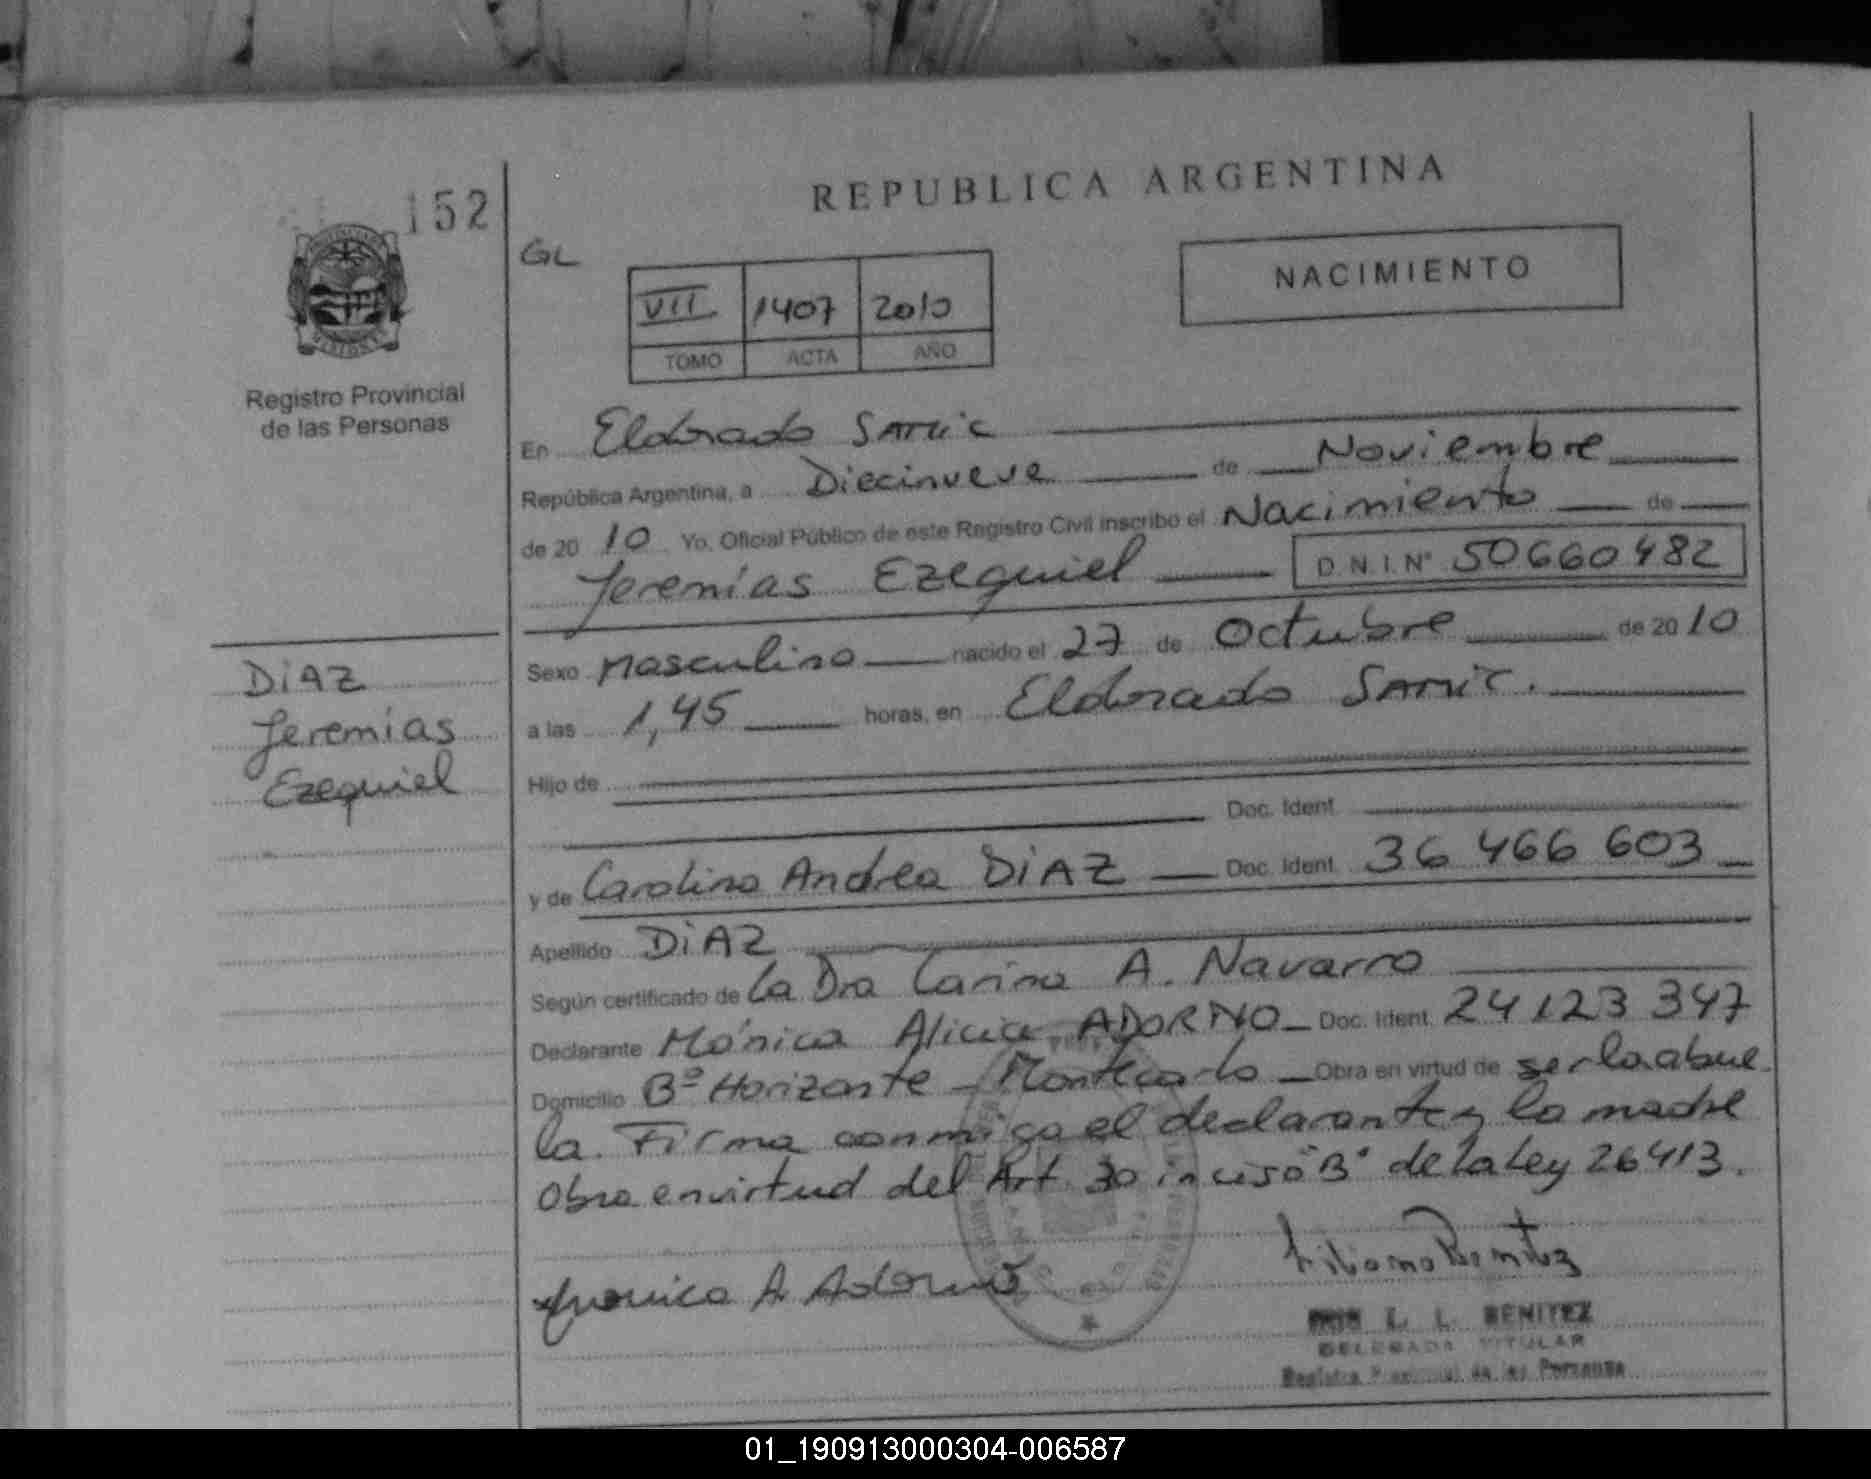 152
REPUBLICA ARGENTINA
GL
NACIMIENTO
VII 1407 2010
TOMO ACTA AÑO
Registro Provincial
de las Personas
En Eldorado SAMIC
República Argentina, a Diecinueve de Noviembre
de 2010 Yo, Oficial Público de este Registro Civil inscribo el Nacimiento de
Jeremías Ezequiel D.N.I.Nº 50660482
Sexo Masculino nacido el 27 de Octubre de 2010
a las 1,45 horas, en Eldorado SAMIC.
DiAZ
Jeremías
Ezequiel
Hijo de
Doc. Ident.
y de Carolina Andrea DiAZ Doc. Ident. 36 466 603
Apellido DiAZ
Según certificado de La Dra Carina A. Navarro
Declarante Mónica Alicia ADORNO Doc. Ident. 24123347
Domicilio Bº Horizonte - Montecarlo Obra en virtud de ser la abue
la. Firma conmigo el declarante y la madre
Obra en virtud del Art 30 inciso "B" de la Ley 26413.
Monica A Adorno
Liliana Benitez
L. L. BENITEZ
DELEGADA TITULAR
Registro Provincial de las Personas
01_190913000304-006587